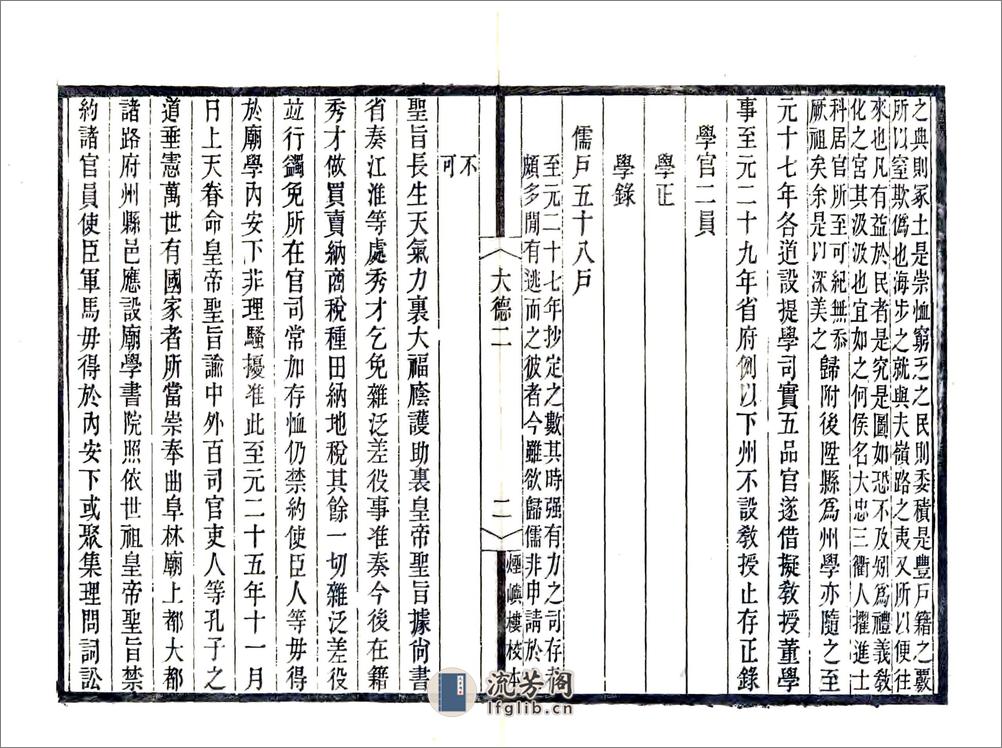 之典則冢土是崇恤窮乏之民則委積是豐戶籍之覈
所以窒欺僞也海步之就與夫嶺路之夷又所以便往
來也凡有益於民者是究是圖如恐不及矧爲禮義敎
化之宮其汲汲也宜如之何侯名大忠三衢人擢進士
科居官所至可紀無忝
厥祖矣余是以深美之
歸附後陞縣爲州學亦隨之至
元十七年各道設提學司實五品官遂借擬敎授董學
事至元二十九年省府例以下州不設敎授止存正錄
學官二員
學正
學錄
儒戶五十八戶
至元二十七年抄定之數其時强有力之司存者
頗多閒有逃而之彼者今雖欲歸儒非申請於
大德二
二
煙嶼樓校本
不
可
聖旨長生天氣力裏大福廕護助裏皇帝聖旨據尙書
省奏江淮等處秀才乞免雜泛差役事准奏今後在籍
秀才做買賣納商稅種田納地稅其餘一切雜泛差役
竝行蠲免所在官司常加存恤仍禁約使臣人等毋得
於廟學內安下非理騷擾准此至元二十五年十一月
日上天眷命皇帝聖旨諭中外百司官吏人等孔子之
道垂憲萬世有國家者所當崇奉曲阜林廟上都大都
諸路府州縣邑應設廟學書院照依世祖皇帝聖旨禁
約諸官員使臣軍馬毋得於內安下或聚集理問詞訟
流芳阁
lfglib.cn